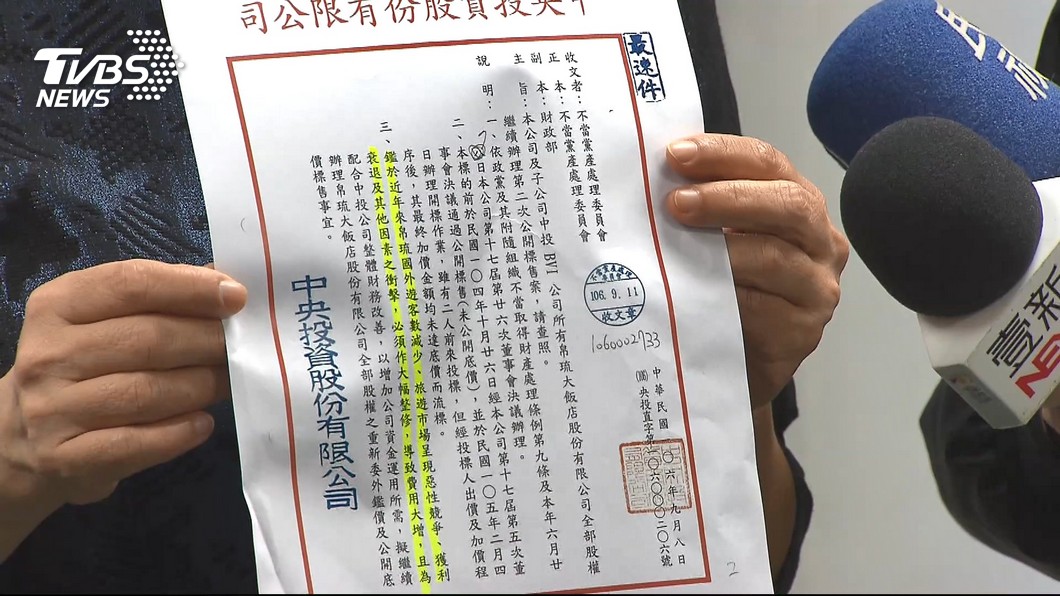 TVBS
NEWS
中央投資股份有限公司
最速件
收文者：不當黨產處理委員會
正　本：不當黨產處理委員會
副　本：財政部
主　旨：本公司及子公司中投BVI公司所有帛琉大飯店股份有限公司全部股權
繼續辦理第二次公開標售案，請查照。
說　明：一、依政黨及其附隨組織不當取得財產處理條例第九條及本年六月廿
日本公司第十七屆第廿六次董事會決議辦理。
二、本標的前於民國一〇四年十月廿六日經本公司第十七屆第五次董
事會決議通過公開標售（未公開底價），並於民國一〇五年二月四
日辦理開標作業，雖有二人前來投標，但經投標人出價及加價程
序後，其最終加價金額均未達底價而流標。
三、鑑於近年來帛琉國外遊客數減少、旅遊市場呈現惡性競爭、獲利
衰退及其他因素之衝擊，必須作大幅整修，導致費用大增，且為
配合中投公司整體財務改善，以增加公司資金運用所需，擬繼續
辦理帛琉大飯店股份有限公司全部股權之重新委外鑑價及公開底
價標售事宜。
中央投資股份有限公司
106.9.11
收文章
1060002733
中華民國一〇六年九月八日
央投直字第一〇六〇〇〇二〇六號
2
壹新